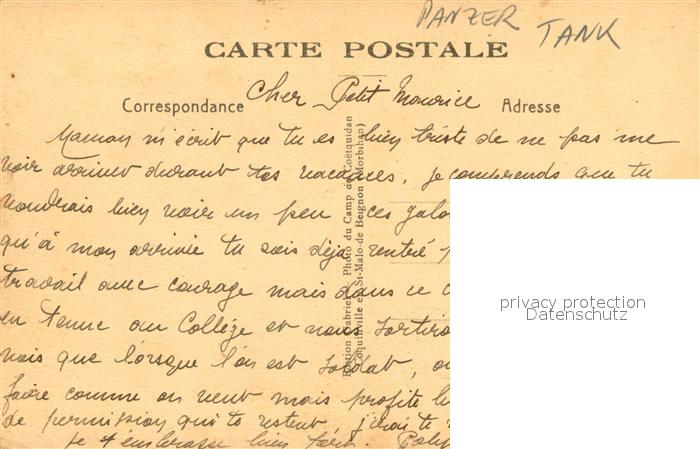 PANZER TANK
CARTE POSTALE
Correspondance Cher Petit Maurice Adresse
Maman m'écrit que tu es bien triste de ne pas me
voir arriver durant tes vacances, je comprends que tu
voudrais bien voir un peu ces
qu'à mon arrivée tu sois déjà rentré
travail avec courage mais dans ce
en tenue au Collège et nous sortiro
vois que lorsque l'on est soldat, on
faire comme on veut mais profite
de permission qui te restent, j'irai te
Je t'embrasse bien fort.
Edition Gabriel - Photo du Camp de Coëtquidan
Coquinville en St-Malo-de Beignon (Morbihan)
privacy protection
Datenschutz